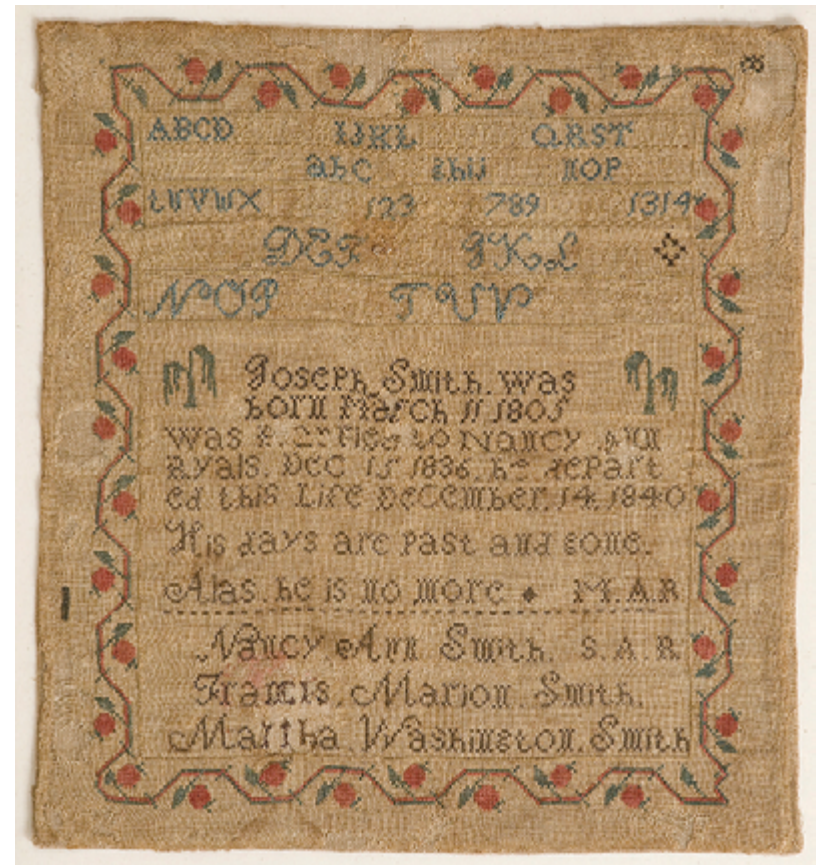 ABCD IJKL QRST
abc hij NOP
tuvwx 123 789 1314
DEF JKL
NOP TUV
Joseph Smith. was
born March 11 1801
was to Nancy Ann
Ryals. Dec 15 1836. he depart
ed this Life December. 14. 1840
His days are past and gone.
Alas. he is no more M. A. R
Nancy. Ann Smith. S. A. R
Francis. Marion. Smith.
Martha. Washington. Smith